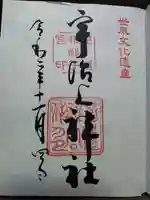 世界文化遺産
宇治上神社
令和二年十一月